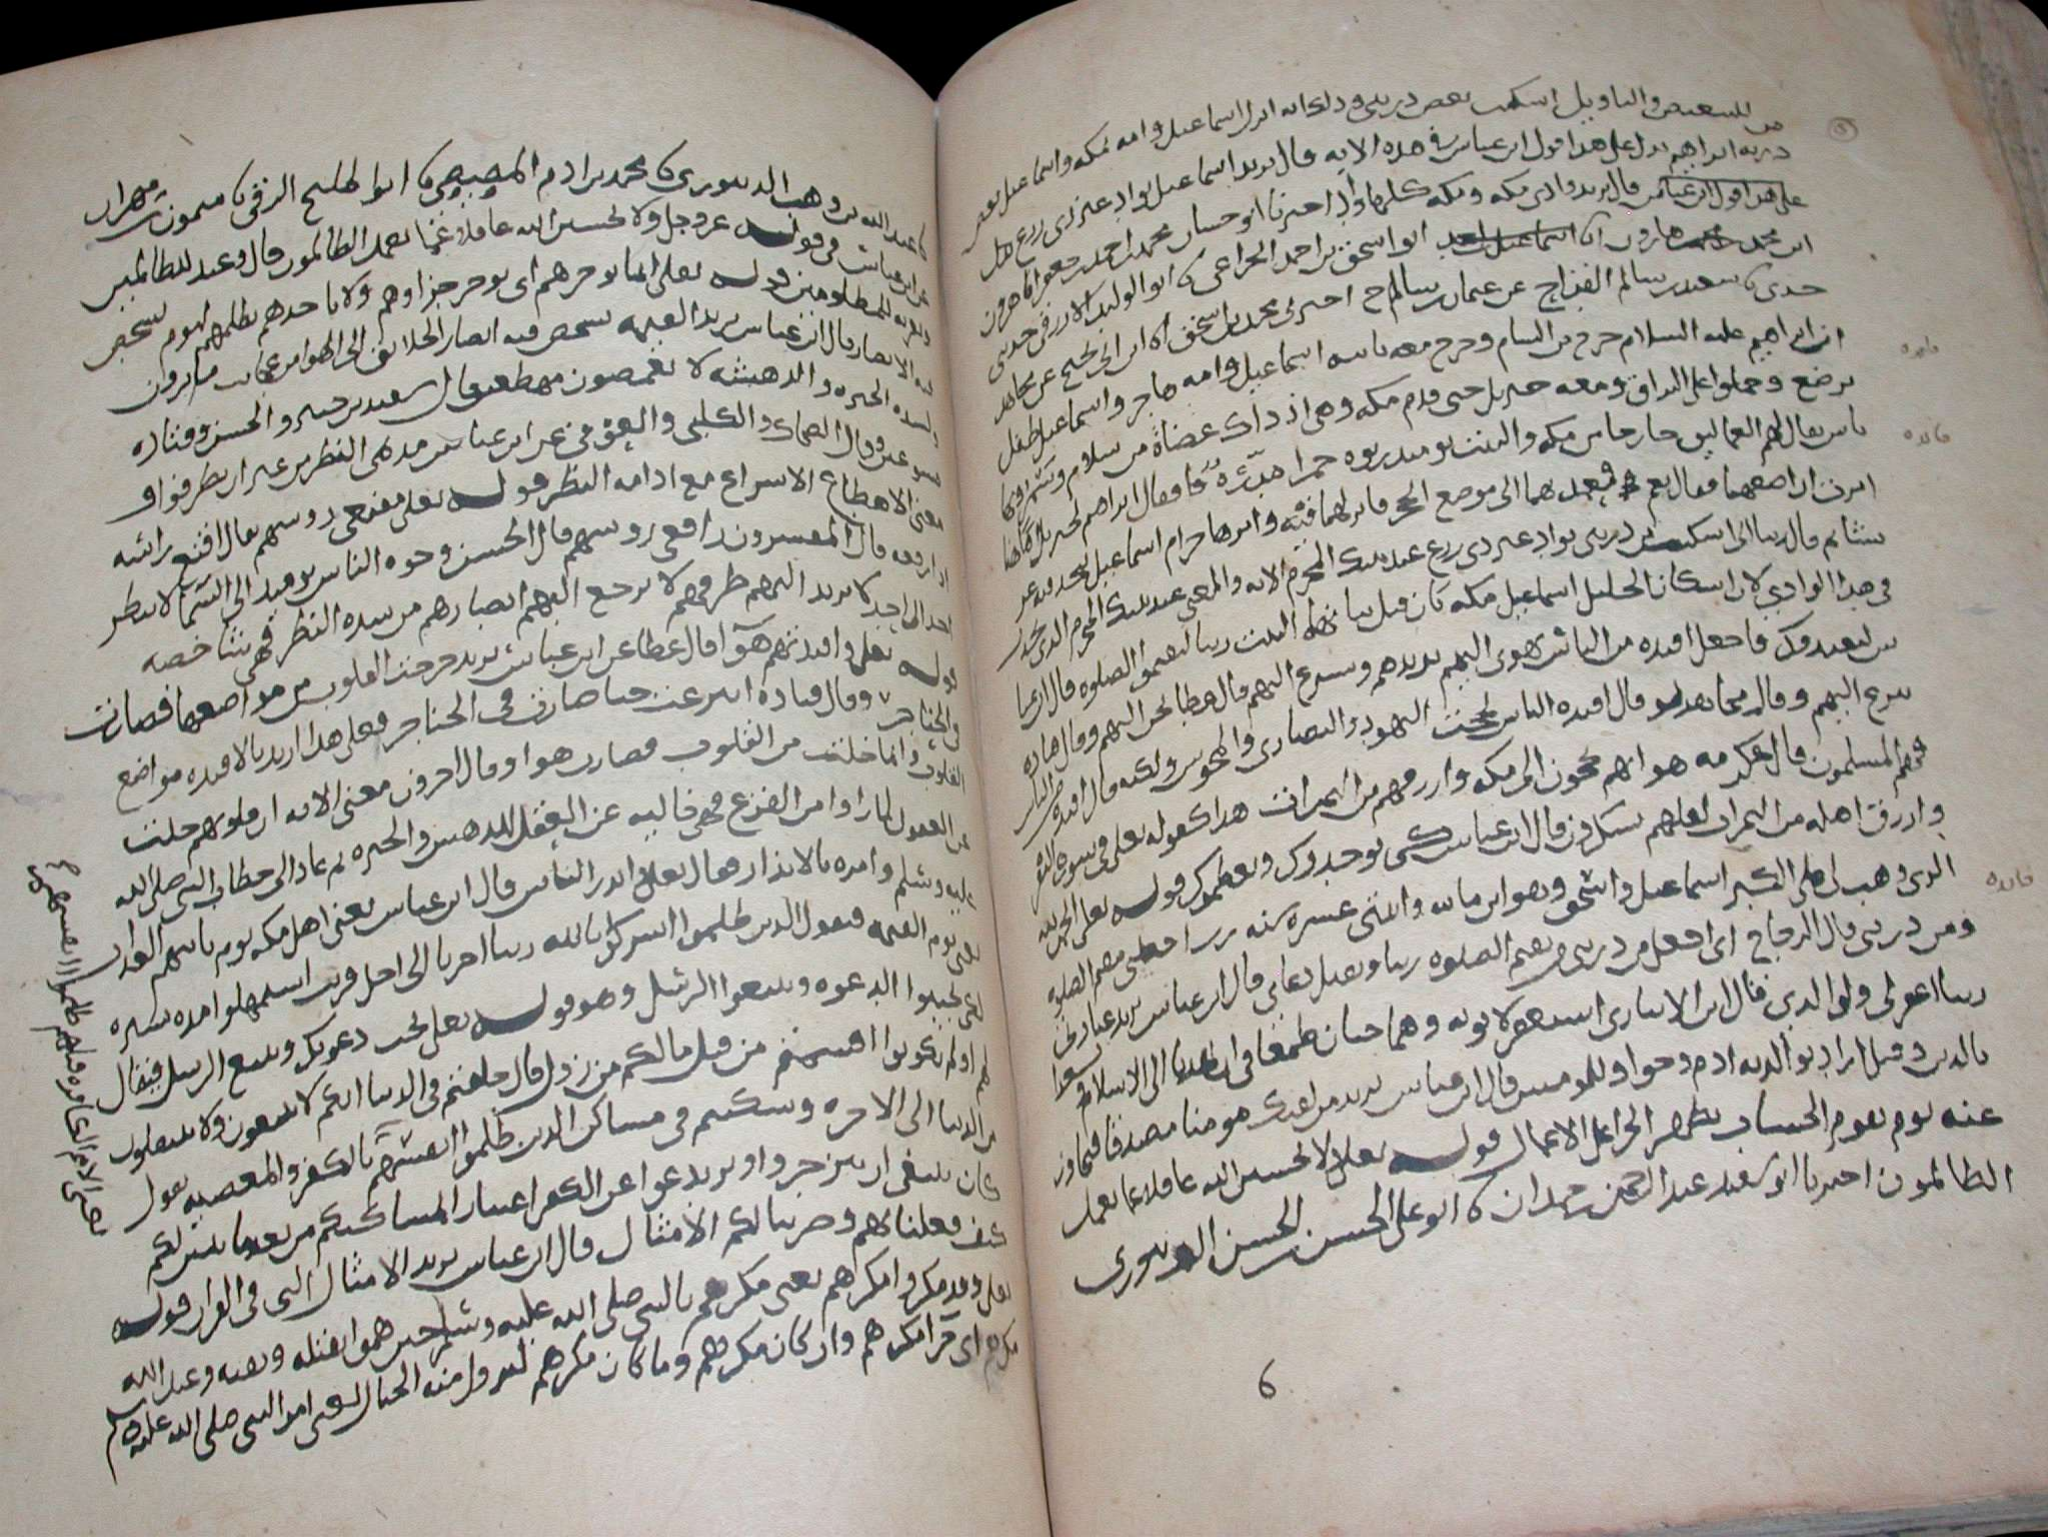 من للتبعيض والتاويل اسكنت بعض ذريتي وذلك انه انزل اسماعيل وامه بمكه واسماعيل بعض
ذريه ابراهيم يدل على هذا قول ابن عباس في هذه الايه قال يريد اسماعيل بواد غير ذي زرع
على هذا قول ابن عباس قال يريد وادي مكه ومكه كلها واد اخبرنا ابو حسان محمد بن احمد بن جعفر انا هرون
ابن محمد بن هارون انا اسماعيل ابو اسحق بن احمد الخزاعي نا ابو الوليد الازرقي حدثني
جدي نا سعيد بن سالم القداح عن عثمان بن ساج اخبرني محمد بن اسحق نا ابن ابي نجيح عن مجاهد
ان ابراهيم عليه السلام خرج من الشام وخرج معه بابنه اسماعيل وامه هاجر واسماعيل طفل
يرضع وحملوا على البراق ومعه جبريل حتى قدم مكه وهي اذ ذاك عضاة من سلام وسمر وبها
ناس يقال لهم العماليق خارجا من مكه والبيت يومئذ ربوه حمرا مدره فقال ابراهيم لجبريل اهاهنا
امرت ان اضعهما فقال نعم فعمد بهما الى موضع الحجر فانزلهما فيه وامر هاجر ام اسماعيل ان تتخذ فيه عر
يشا ثم قال ربنا اني اسكنت من ذريتي بواد غير ذي زرع عند بيتك المحرم الايه والمعنى عند بيتك المحرم الذي يحدث
في هذا الوادي لان اسكان الخليل اسماعيل مكه كان قبل بنائهما البيت ربنا ليقيموا الصلوه قال ابن عباس
من ليعبدوك فاجعل افئده من الناس تهوى اليهم تريدهم وتسرع اليهم قال عطا تحن اليهم وقال قتاده
تنزع اليهم وقال مجاهد لو قال افئده الناس لحجت اليهود والنصارى والمجوس ولكنه قال افئده من الناس
فهم المسلمون قال عكرمه هو انهم يحجون الى مكه وارزقهم من الثمرات هذا كقوله تعلى في سوره البقره
وارزق اهله من الثمرات لعلهم يشكرون قال ابن عباس كي يوحدوك ويعظموك قوله تعلى الحمد لله
الذي وهب لي على الكبر اسماعيل واسحق وهو ابن مائه واثنتي عشره سنه رب اجعلني مقيم الصلوه
ومن ذريتي قال الزجاج اي اجعل من ذريتي من يقيم الصلوه ربنا وتقبل دعاي قال ابن عباس يريد عبادتي
ربنا اغفر لي ولوالدي قال ابن الانباري استغفر لابويه وهما حيان طمعا في ان يهديا الى الاسلام
بالدين وقيل اراد بوالديه ادم وحوا وللمومنين قال ابن عباس يريد من لقيك مومنا مصدقا فتجاوز
عنه يوم يقوم الحساب يظهر الجزا على الاعمال قوله تعلى ولا تحسبن الله غافلا عما يعمل
الظالمون اخبرنا ابو سعيد عبد الرحمن بن حمدان نا ابو علي الحسين بن الحسن الدينوري
6
فايده
فايده
فايده
نا عبد الله بن وهب الدينوري نا محمد بن ادم المصيصي نا ابو المليح الرقي نا ميمون بن مهران
عن ابن عباس في قوله عز وجل ولا تحسبن الله غافلا عما يعمل الظالمون قال وعيد للظالمين
وتعزيه للمظلومين قوله تعلى انما يوخرهم اي يوخر جزاوهم ولا ياخذهم بظلمهم ليوم تشخص
فيه الابصار قال ابن عباس يريد القيمه تشخص فيه ابصار الخلايق الى الهوا من عجايب ما يرون
ولشده الحيره والدهشه لا يغمضون مهطعين قال سعيد بن جبير والحسن وقتاده
مسرعين وقال الضحاك والكلبي والعوفي عن ابن عباس مديمي النظر من غير ان يطرفوا و
معنى الاهطاع الاسراع مع ادامه النظر قوله تعلى مقنعي روسهم يقال اقنع راسه
اذا رفعه قال المفسرون رافعي روسهم قال الحسن وجوه الناس يوميذ الى السما لا ينظر
احد الى احد لا يرتد اليهم طرفهم لا ترجع اليهم ابصارهم من شده النظر فهي شاخصه
قوله تعلى وافئدتهم هوا قال عطا عن ابن عباس يريد خرجت القلوب من مواضعها فصارت
في الحناجر وقال قتاده انتزعت حتى صارت في الحناجر فعلى هذا اريد بالافئده مواضع
القلوب وانها خلت من القلوب فصارت هوا وقال اخرون معنى الايه ان قلوبهم خلت
عن العقول لما راوا من الفزع فهي خاليه عن العقل للدهش والحيره ثم عاد الى خطاب النبي صلى الله
عليه وسلم وامره بالانذار فقال تعلى وانذر الناس قال ابن عباس يعني اهل مكه يوم ياتيهم العذاب
يعني يوم القيمه فيقول الذين ظلموا اشركوا بالله ربنا اخرنا الى اجل قريب استمهلوا مده يسيره
لكي يجيبوا الدعوه ويتبعوا الرسل وهو قوله تعلى نجب دعوتك ونتبع الرسل فيقال
لهم اولم تكونوا اقسمتم من قبل ما لكم من زوال قال حلفتم في الدنيا انكم لا تبعثون ولا تنتقلون
من الدنيا الى الاخره وسكنتم في مساكن الذين ظلموا انفسهم بالكفر والمعصيه يقول
كان ينبغي ان ينزجروا ويرتدعوا عن الكفر اعتبارا بمساكنهم من بعد ما تبين لكم
كيف فعلنا بهم وضربنا لكم الامثال قال ابن عباس يريد الامثال التي في القران قوله
تعلى وقد مكروا مكرهم يعني مكرهم بالنبي صلى الله عليه وسلم حين هموا بقتله ونفيه وعند الله
مكرهم اي جزا مكرهم وان كان مكرهم وما كان مكرهم لتزول منه الجبال يعني امر النبي صلى الله عليه وسلم
يعني الامم الكافره قبلهم ظلموا انفسهم